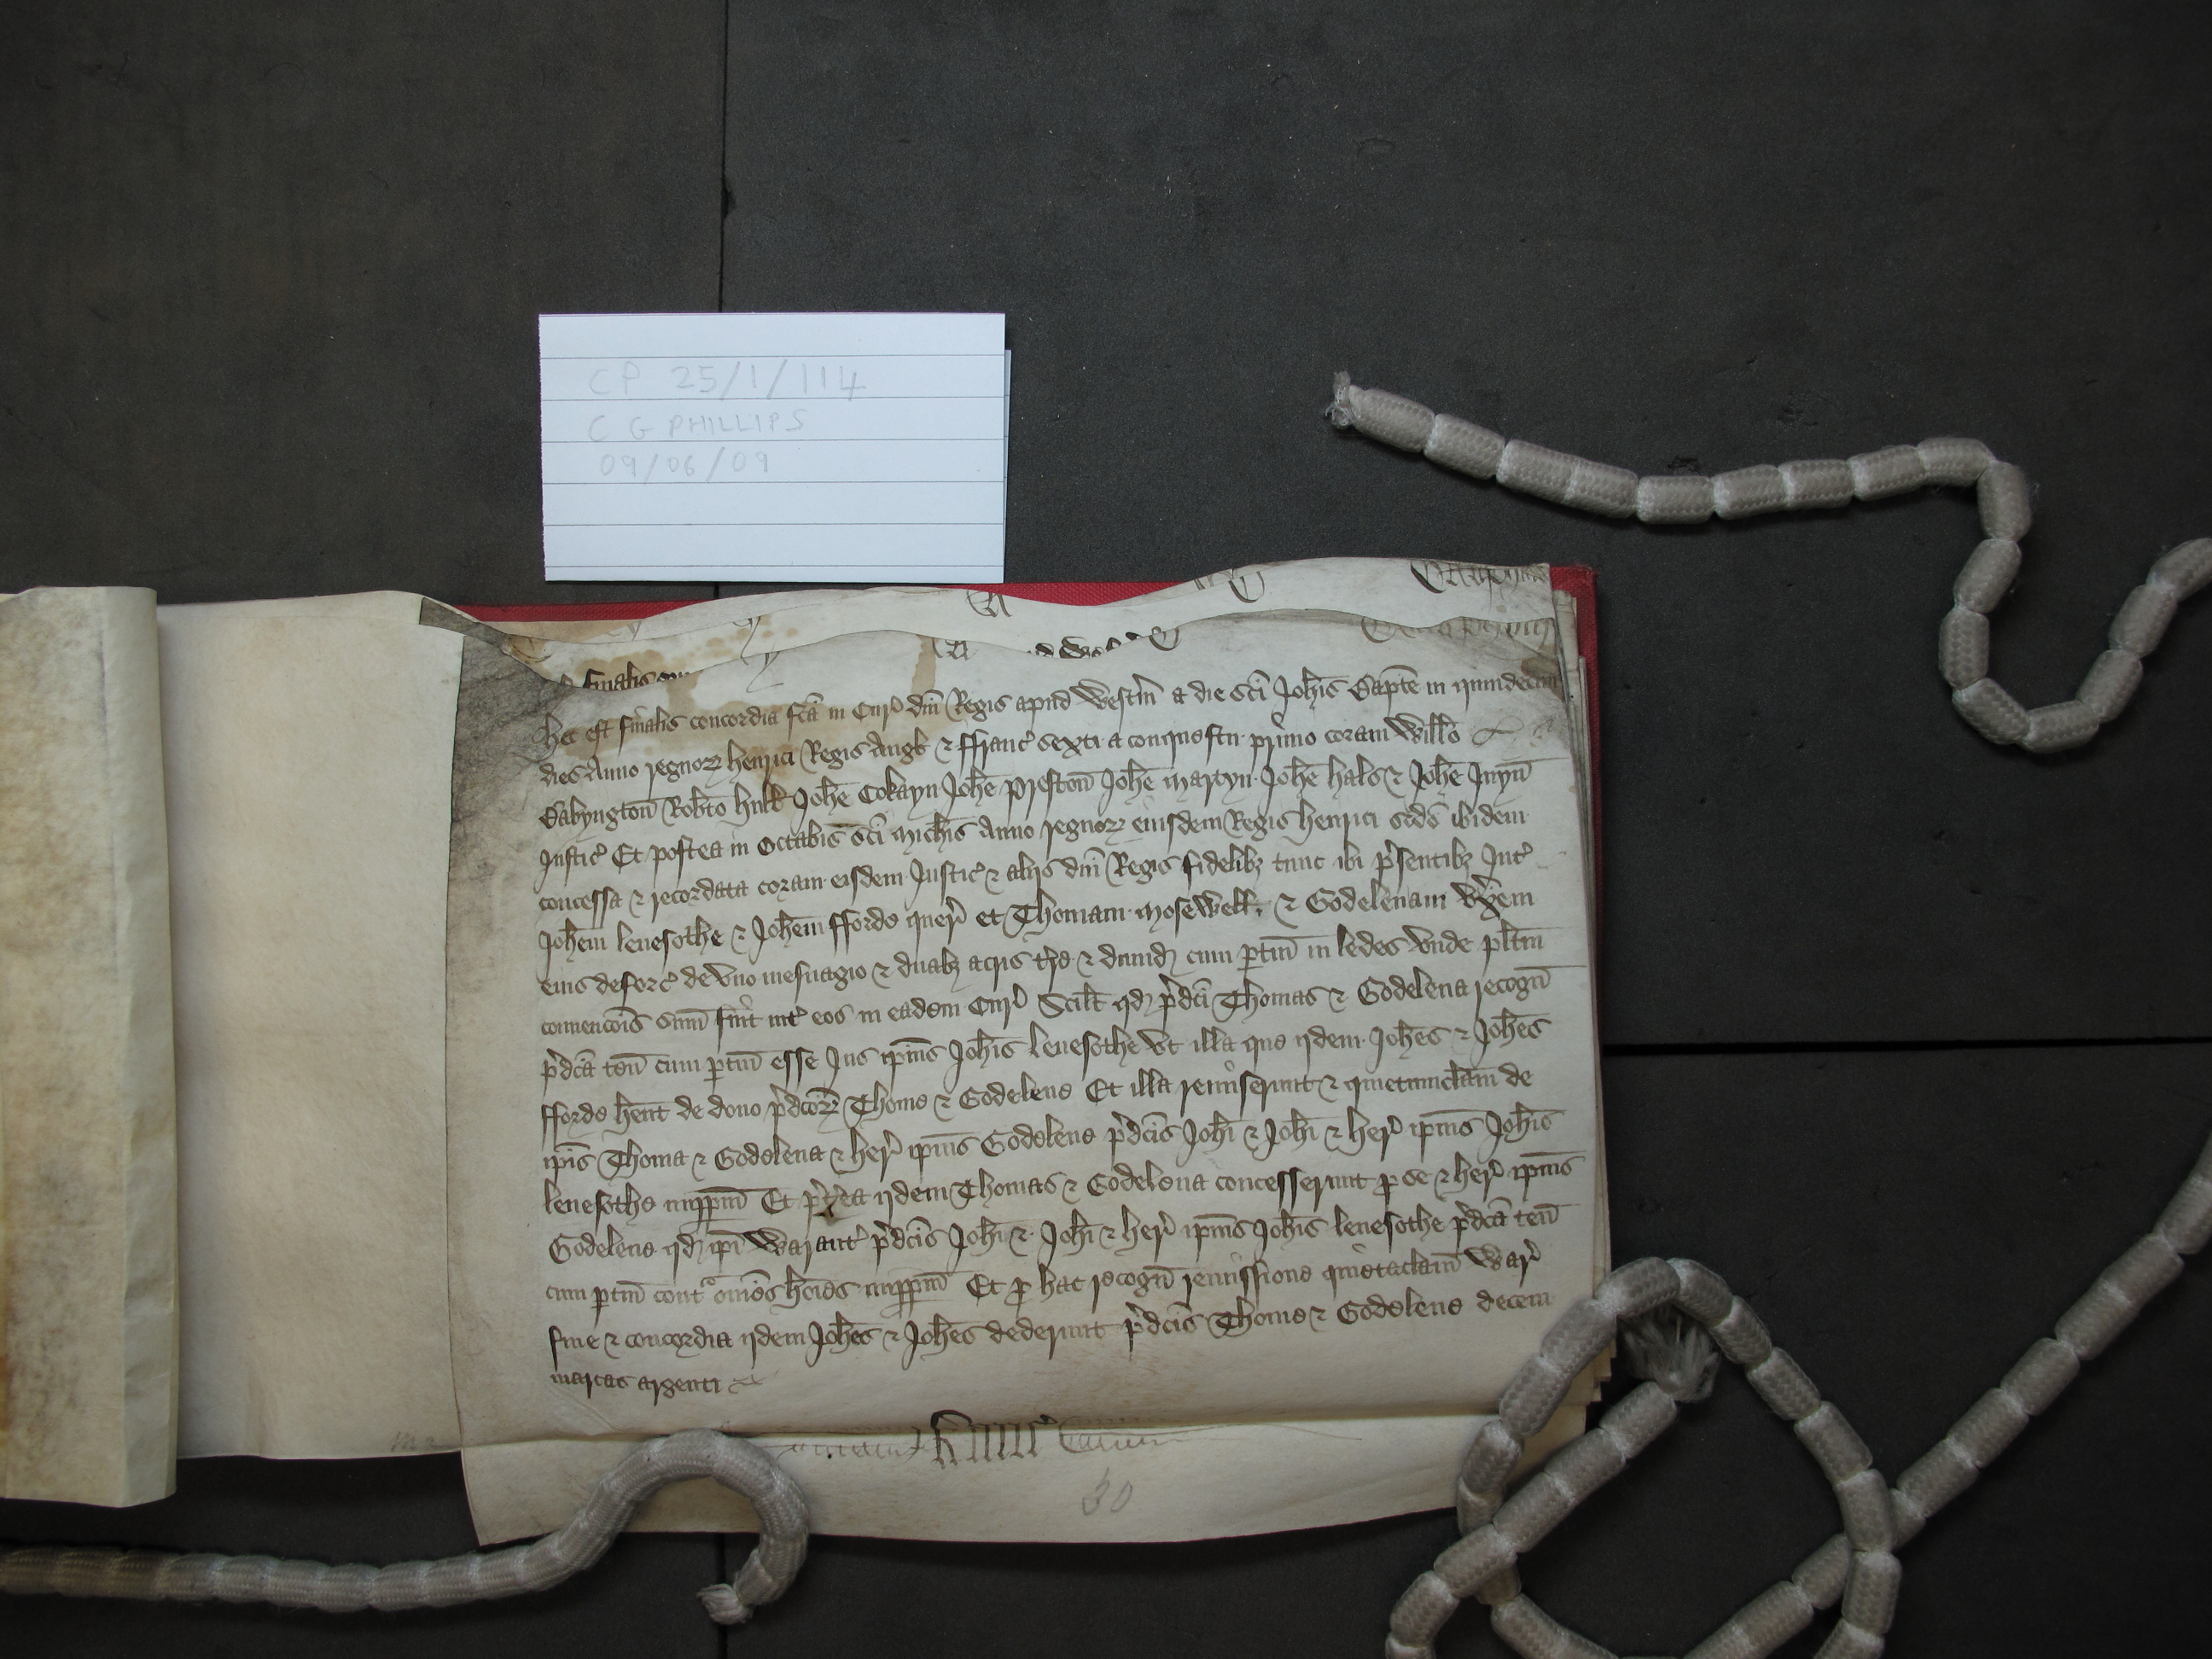 CP 25/1/114
C G PHILLIPS
09/06/09
finalis
hec est finalis concordia fc̄a in Cur̉ dn̄i Regis apud Westm̄ a die sc̄i Joh̄is Bapt̄e in quindecim
dies Anno regnoꝝ henrici Regis Angl̄ & ffranc̉ sexti a conquestu primo coram Will̄o
Babyngton̄ Rob̄to hull̄ Joh̄e Cokayn Joh̄e Preston̄ Joh̄e Martyn Joh̄e hals & Joh̄e Juyn̄
Justic̉ Et postea in Octabis sc̄i Mich̄is Anno regnoꝝ eiusdem Regis henrici sc̄do ibidem
concessa & recordata coram eisdem Justic̉ & aliis dn̄i Regis fidelibꝫ tunc ibi p̉sentibꝫ Int̉
Joh̄em leuesothe & Joh̄em fforde quer̉ et Thomam Mosewell̄ & Godelenam vx̄em
eius deforc̉ de vno mesuagio & duabꝫ acris t̉re & dimid̄ cum ptin̄ in ledes vnde pl̄itm̄
conuenc̄ois sum̄ fuit int̉ eos in eadem Cur̉ Scilt̄ qd̄ p̉dc̄i Thomas & Godelena recogn̄
p̉dc̄a ten̄ cum ptin̄ esse Jus ip̄ius Joh̄is leuesothe vt illa que ijdem Joh̄es & Joh̄es
fforde h̄ent de dono p̉dc̄oꝝ Thome & Godelene Et illa remiserunt & quietumclam̄ de
ip̄is Thoma & Godelena & her̉ ip̄ius Godelene p̉dc̄is Joh̄i & Joh̄i & her̉ ip̄ius Joh̄is
leuesothe imppm̄ Et p̉t̉ea ijdem Thomas & Godelena concesserunt p se & her̉ ip̄ius
Godelene qd̄ ip̄i Warant̉ p̉dc̄is Joh̄i & Joh̄i & her̉ ip̄ius Joh̄is leuesothe p̉dc̄a ten̄
cum ptin̄ cont̉ om̄es hōies imppm̄ Et p hac recogn̄ remissione quietaclam̄ War̉
fine & concordia ijdem Joh̄es & Joh̄es dederunt p̉dc̄is Thome & Godelene decem
marcas argenti
30